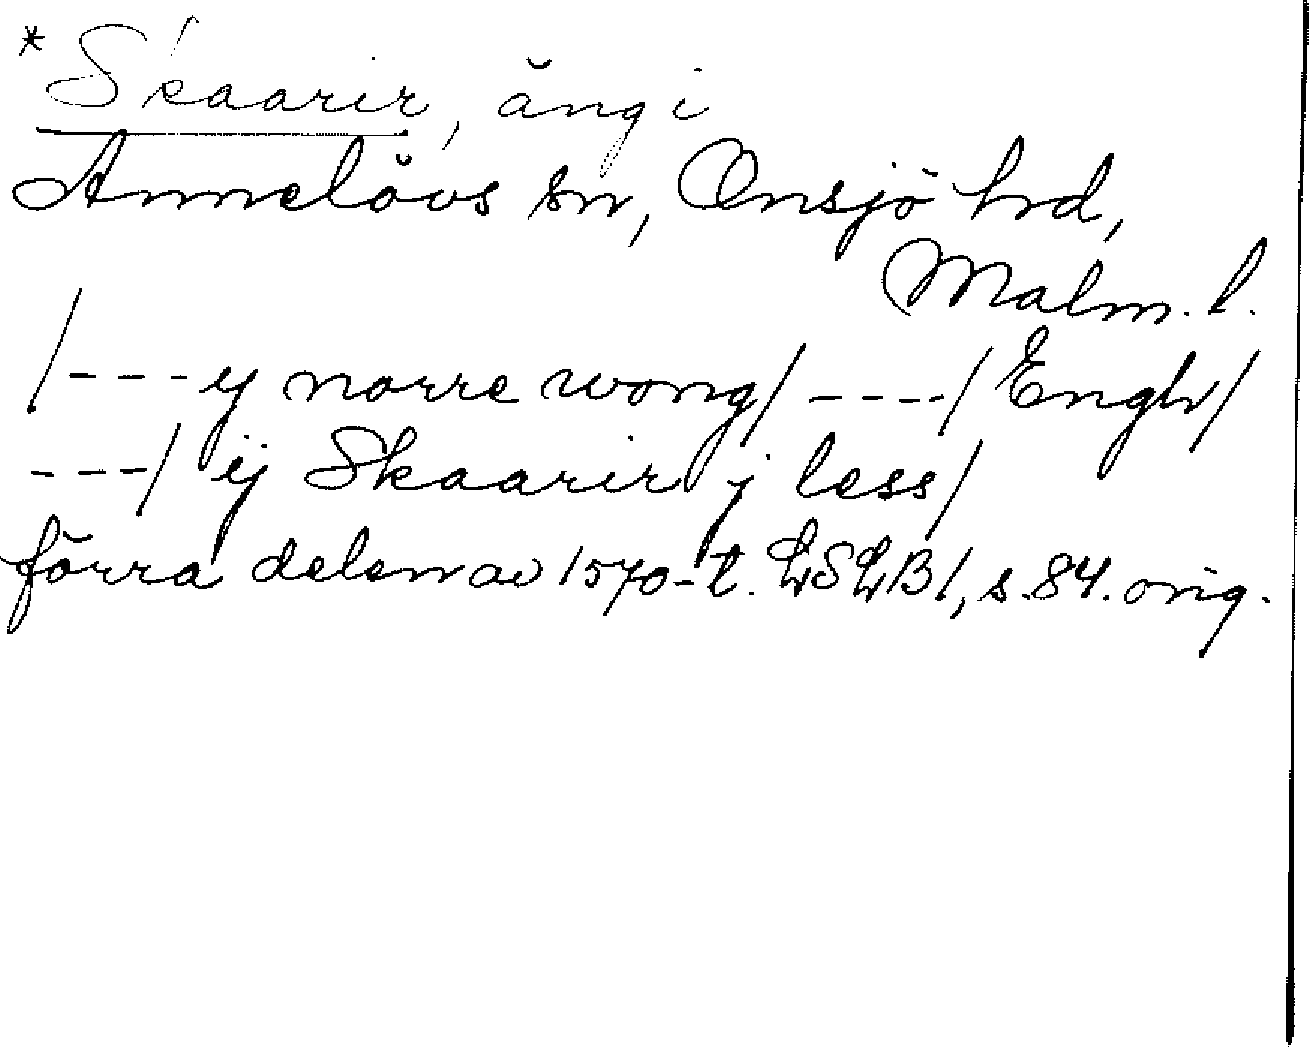 *Skaarir, äng i
Annelövs sn, Onsjö hrd,
Malm. l.
/---ij norre wong/ ----/ Engh/
---/ ij Skaarir j less/
förra delen av 1570-t. LSLB1, s. 84. orig.